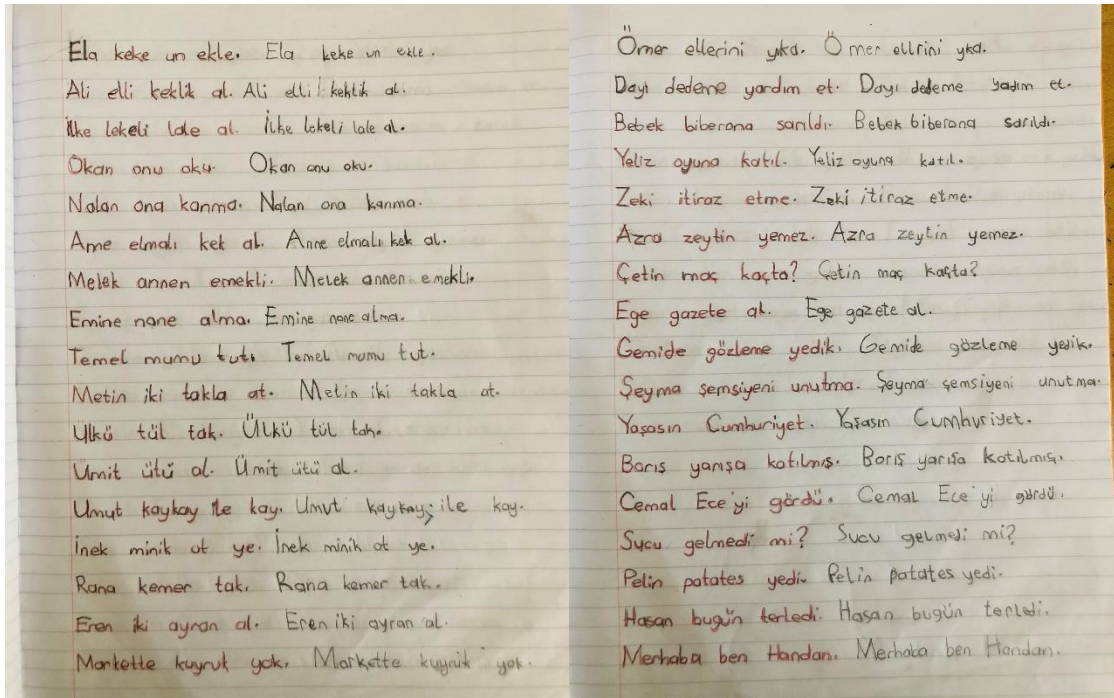 Ela keke un ekle. Ela keke un ekle.
Ali elli keklik al. Ali elli keklik al.
İlke lekeli lale al. İlke lekeli lale al.
Okan onu oku. Okan onu oku.
Nalan ona kanma. Nalan ona kanma.
Anne elmalı kek al. Anne elmalı kek al.
Melek annen emekli. Melek annen emekli.
Emine nane alma. Emine nane alma.
Temel mumu tut. Temel mumu tut.
Metin iki takla at. Metin iki takla at.
Ülkü tül tak. Ülkü tül tak.
Ümit ütü al. Ümit ütü al.
Umut kaykay ile kay. Umut kaykay ile kay.
İnek minik ot ye. İnek minik ot ye.
Rana kemer tak. Rana kemer tak.
Eren iki ayran al. Eren iki ayran al.
Markette kuyruk yok. Markette kuyruk yok.
Ömer ellerini yıka. Ömer ellrini yka.
Dayı dedeme yardım et. Dayı dedeme yadım et.
Bebek biberona sarıldı. Bebek biberona sarıldı.
Yeliz oyuna katıl. Yeliz oyuna katıl.
Zeki itiraz etme. Zeki itiraz etme.
Azra zeytin yemez. Azra zeytin yemez.
Çetin maç kaçta? Çetin maç kaçta?
Ege gazete al. Ege gazete al.
Gemide gözleme yedik. Gemide gözleme yedik.
Şeyma şemsiyeni unutma. Şeyma şemsiyeni unutma.
Yaşasın Cumhuriyet. Yaşasın Cumhuriyet.
Barış yarışa katılmış. Barış yarışa katılmış.
Cemal Ece'yi gördü. Cemal Ece'yi gördü.
Sucu gelmedi mi? Sucu gelmedi mi?
Pelin patates yedi. Pelin patates yedi.
Hasan bugün terledi. Hasan bugün terledi.
Merhaba ben Handan. Merhaba ben Handan.